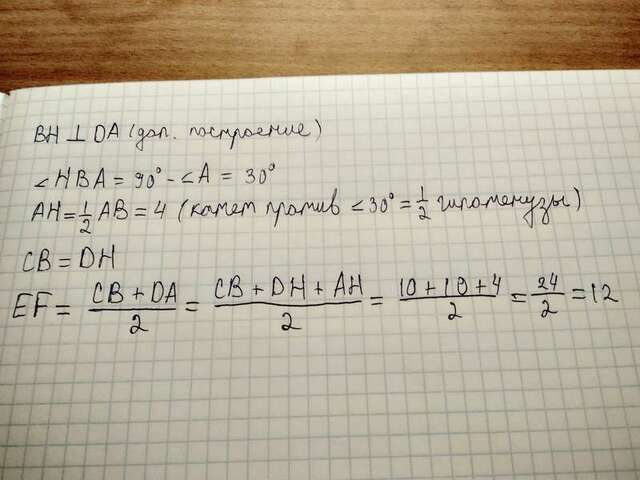 BH ⊥ DA (доп. построение)
∠HBA = 90° - ∠A = 30°
AH = 1/2 AB = 4 (катет против ∠30° = 1/2 гипотенузы)
CB = DH
EF = (CB + DA)/2 = (CB + DH + AH)/2 = (10 + 10 + 4)/2 = 24/2 = 12